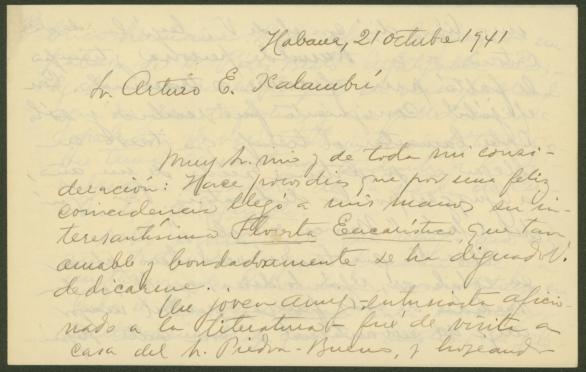 Habana, 21 octubre 1941
Sr. Arturo E. Xalambrí
Muy Sr. mio y de toda mi consi-
deración: Hace pocos dias que por una feliz
coincidencia llegó a mis manos su in-
teresantísimo Florero Eucarístico, que tan
amable y bondadosamente se ha dignado V.
dedicarme.
Un joven amigo, entusiasta aficio-
nado a la literatura fué de visita a
casa del Sr. Piedra-Bueno, y hojeando